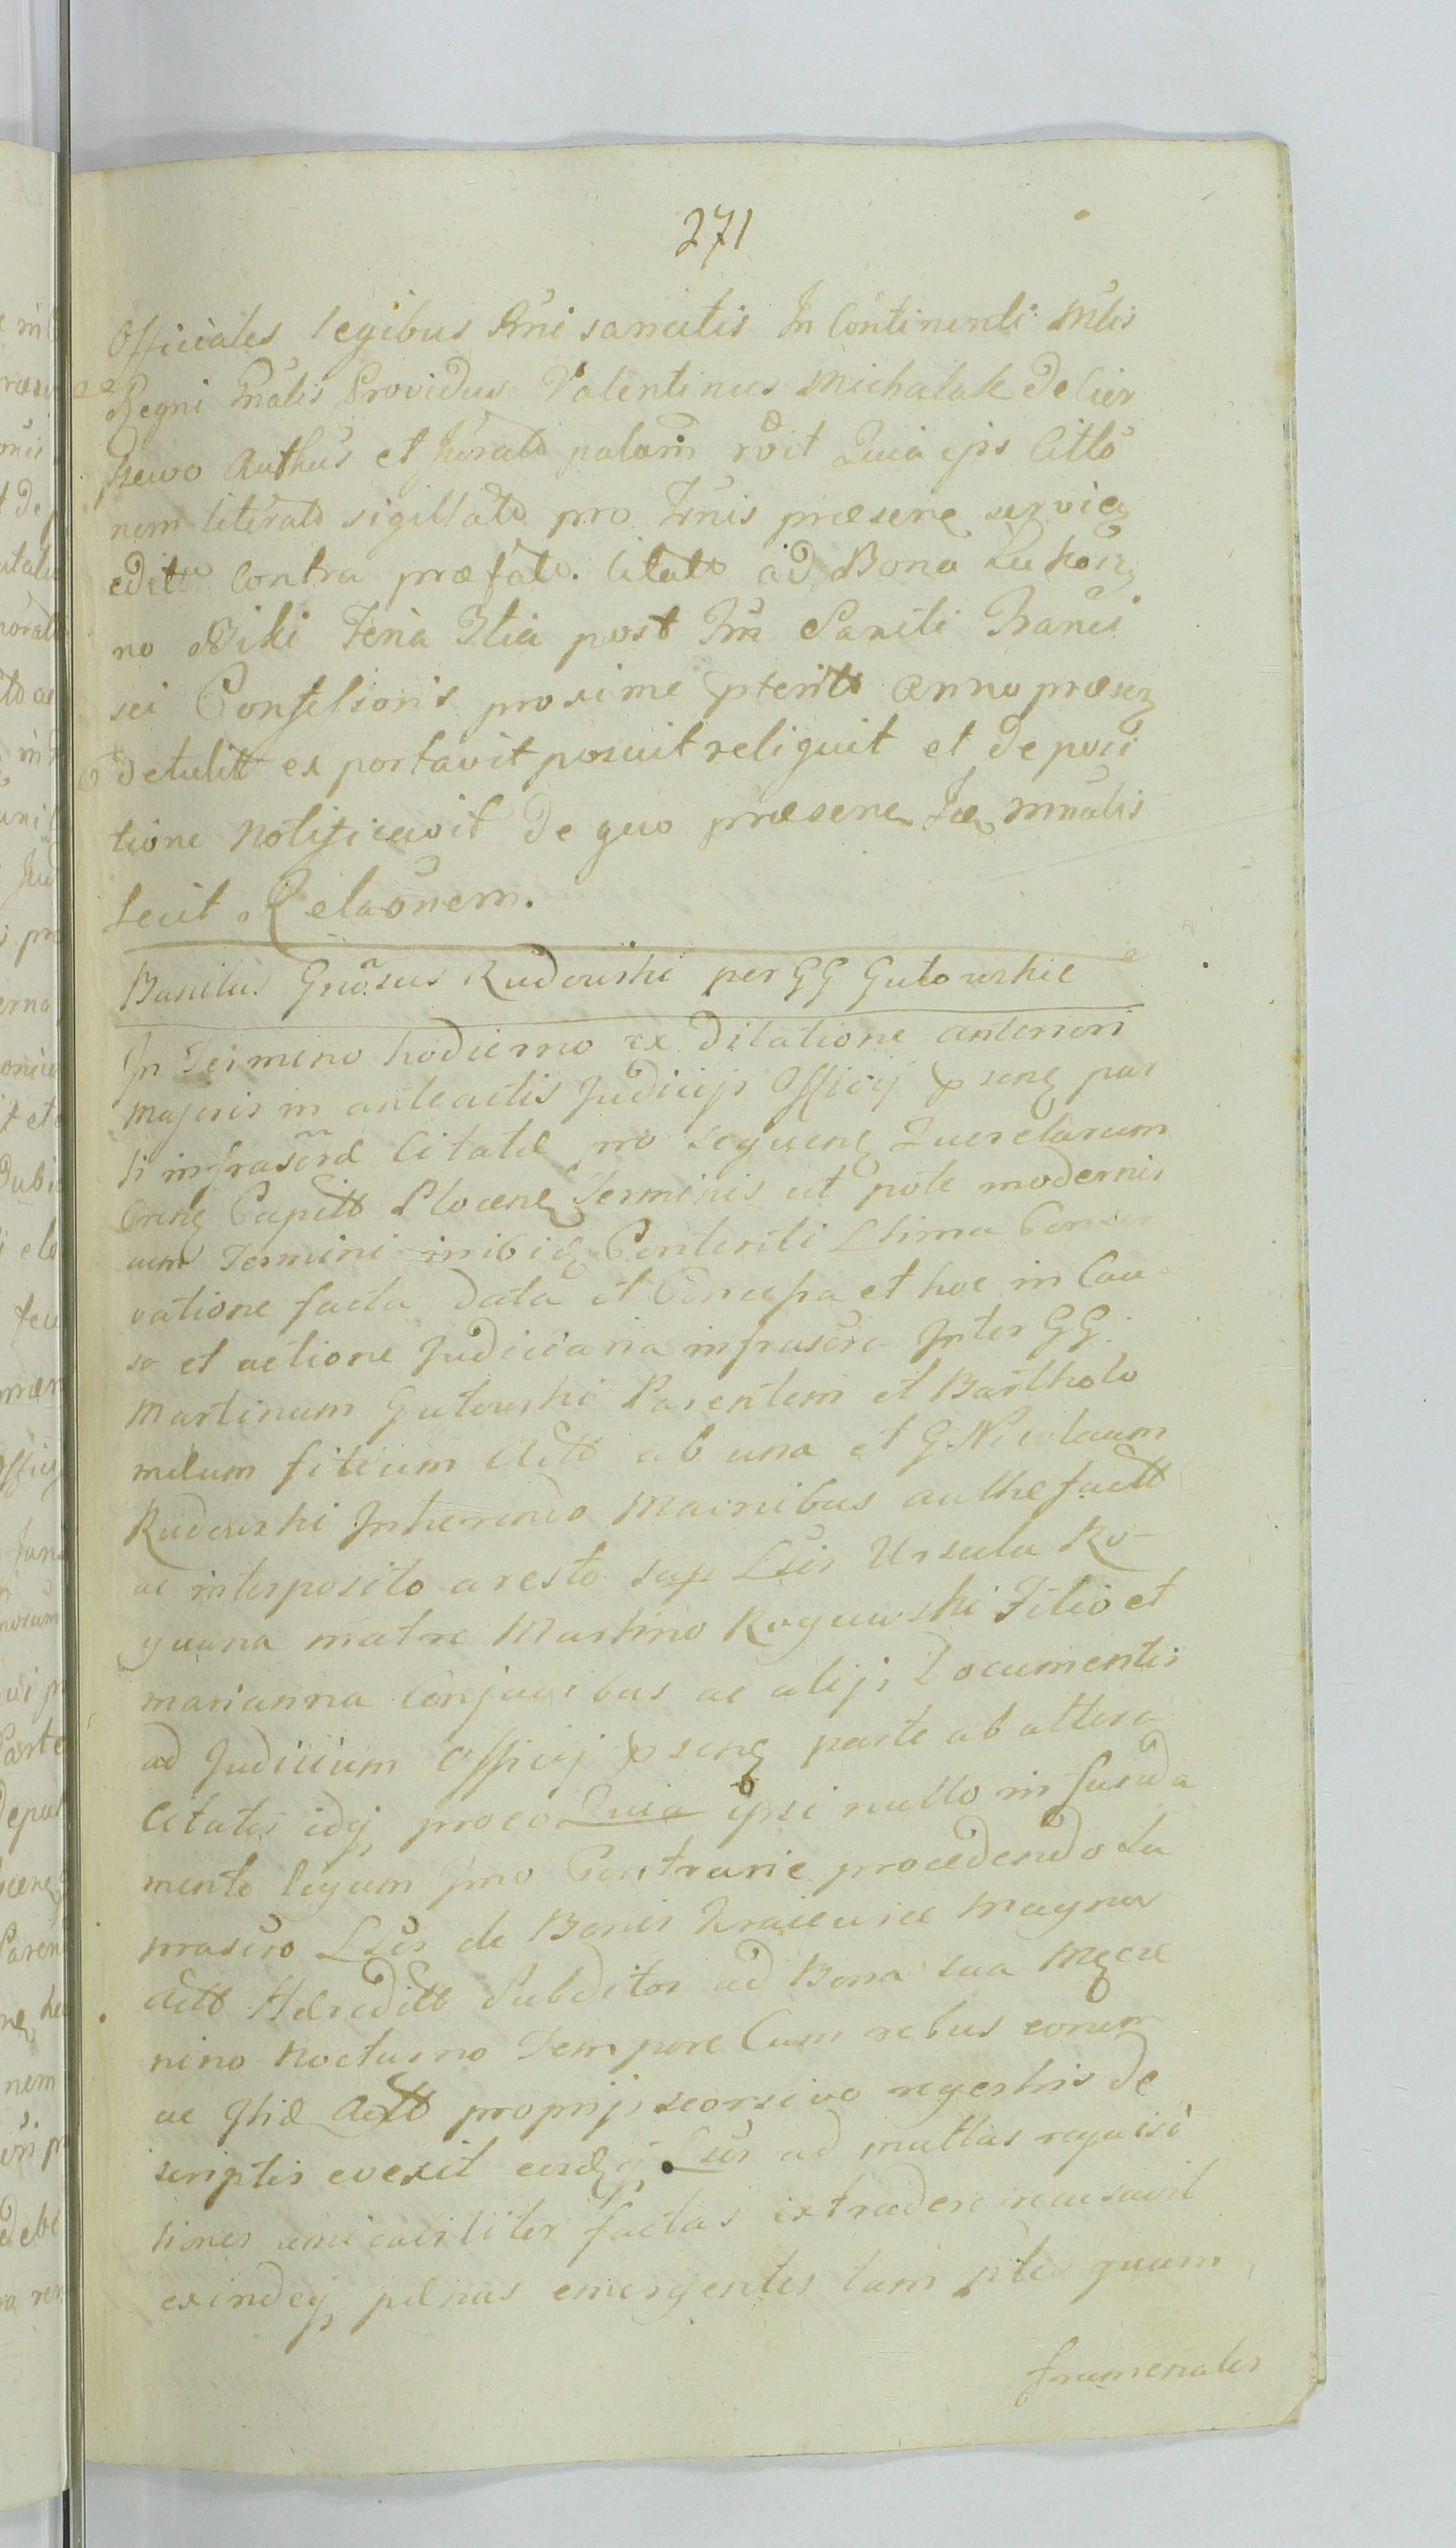 271
Officiales legibus Rni sancitis In Continenti Mlis
Regni Gnalis Providus Valentinus Michalak de Cier
Authus et Jurato palam rdit Quia ips Citto
nem literato sigillato pro Trnis præsene
editt Contra præfato. Citato ad Bona
no Biki Feria 3tia post Fm Sancti Franci
sci Confessoris proxime pterito Anno præsen
detulit exportavit posuit reliquit et de posi
tione Notificavit de quo præsene Mnualis
fecit Relaonem.
Banitus Gnosus Rudowski per GG Gutowskie
In Termino hodierno ex Dilatione anteriori
Majoris in anteactis Judicijs Officij psene par
ti infrascræ Citatæ pro sequene Querelarum
Orene Capitt Plocene Terminis ut pote modernis
cum Termini inibiq Contenti Lsima Conser
vatione facta data et Concessa et hoc in Cau
sa et actione Judiciaria infrascra Inter GG.
Martinum Gutowski Parentem et Bartholo
mæum filium Actt ab una et G. Nicolaum
Rudowski Inherendo Mainibus
ac interposito aresto sup Lser Ursula Ro-
guana matre Martino Roguwski Filio et
marianna Conjugibus ac alijs Documentis
ad Judicium Officij psene parte ab altera
Citatis idq proeo Quia ipsi nullo in funda
mento legum Imo Contrarie procedendo Su
prascro Lser de Bonis Kraiewice Magna
Actt Hæreditt Subditos ad Bona sua
nino Nocturno Tempore Cum rebus eorum
ac Actt proprijs seorsivo regestris de
scriptis evexit eosdq Lser ad multas requisi
tiones amicabiliter factas extradere recusavit
exindeq pænas emergentes tam plis quam
frumenales